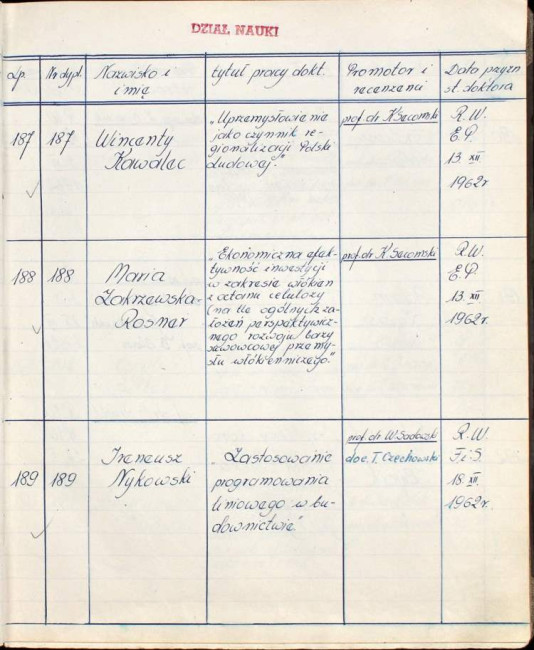 DZIAŁ NAUKI
Lp. Nr dypl. Nazwisko i imię tytuł pracy dokt. Promotor i recenzenci Data przyzn st. doktora
187 187 Wincenty Kawalec
„Uprzemysłowienie
jako czynnik re-
gionalizacji Polski
Ludowej."
prof. dr K. Secomski
R.W.
E.P.
13 XII
1962 r
188 188 Maria Zakrzewska-Rosner
„Ekonomiczna efek-
tywność inwestycji
w zakresie włókien
z octanu celulozy
(na tle ogólnych za-
łożeń perspektywicz-
nego rozwoju bazy
surowcowej przemy-
słu włókienniczego."
prof. dr K. Secomski
R.W.
E.P.
13. XII
1962 r.
189 189 Ireneusz Nykowski
„Zastosowanie
programowania
liniowego w bu-
downictwie"
prof. dr W. Sadowski
doc. T. Czechowski
R.W.
F. i S.
18. XII.
1962 r.